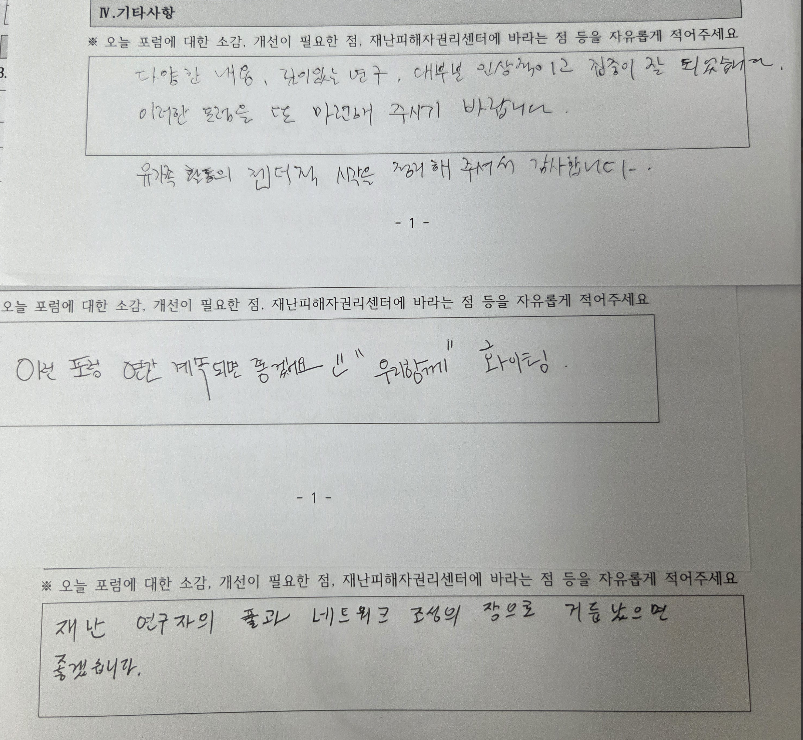 Ⅳ.기타사항
※ 오늘 포럼에 대한 소감, 개선이 필요한 점, 재난피해자권리센터에 바라는 점 등을 자유롭게 적어주세요
다양한 내용, 깊이있는 연구, 대부분 인상적이고 집중이 잘 되었습니다.
이러한 포럼을 또 마련해 주시기 바랍니다.
유가족 활동의 젠더적 시각을 정리해 주셔서 감사합니다.
- 1 -
오늘 포럼에 대한 소감, 개선이 필요한 점. 재난피해자권리센터에 바라는 점 등을 자유롭게 적어주세요
이런 포럼 연간 계속되면 좋겠어요 !! "우리함께" 화이팅.
- 1 -
※ 오늘 포럼에 대한 소감, 개선이 필요한 점, 재난피해자권리센터에 바라는 점 등을 자유롭게 적어주세요
재난 연구자의 풀과 네트워크 조성의 장으로 거듭났으면
좋겠습니다.